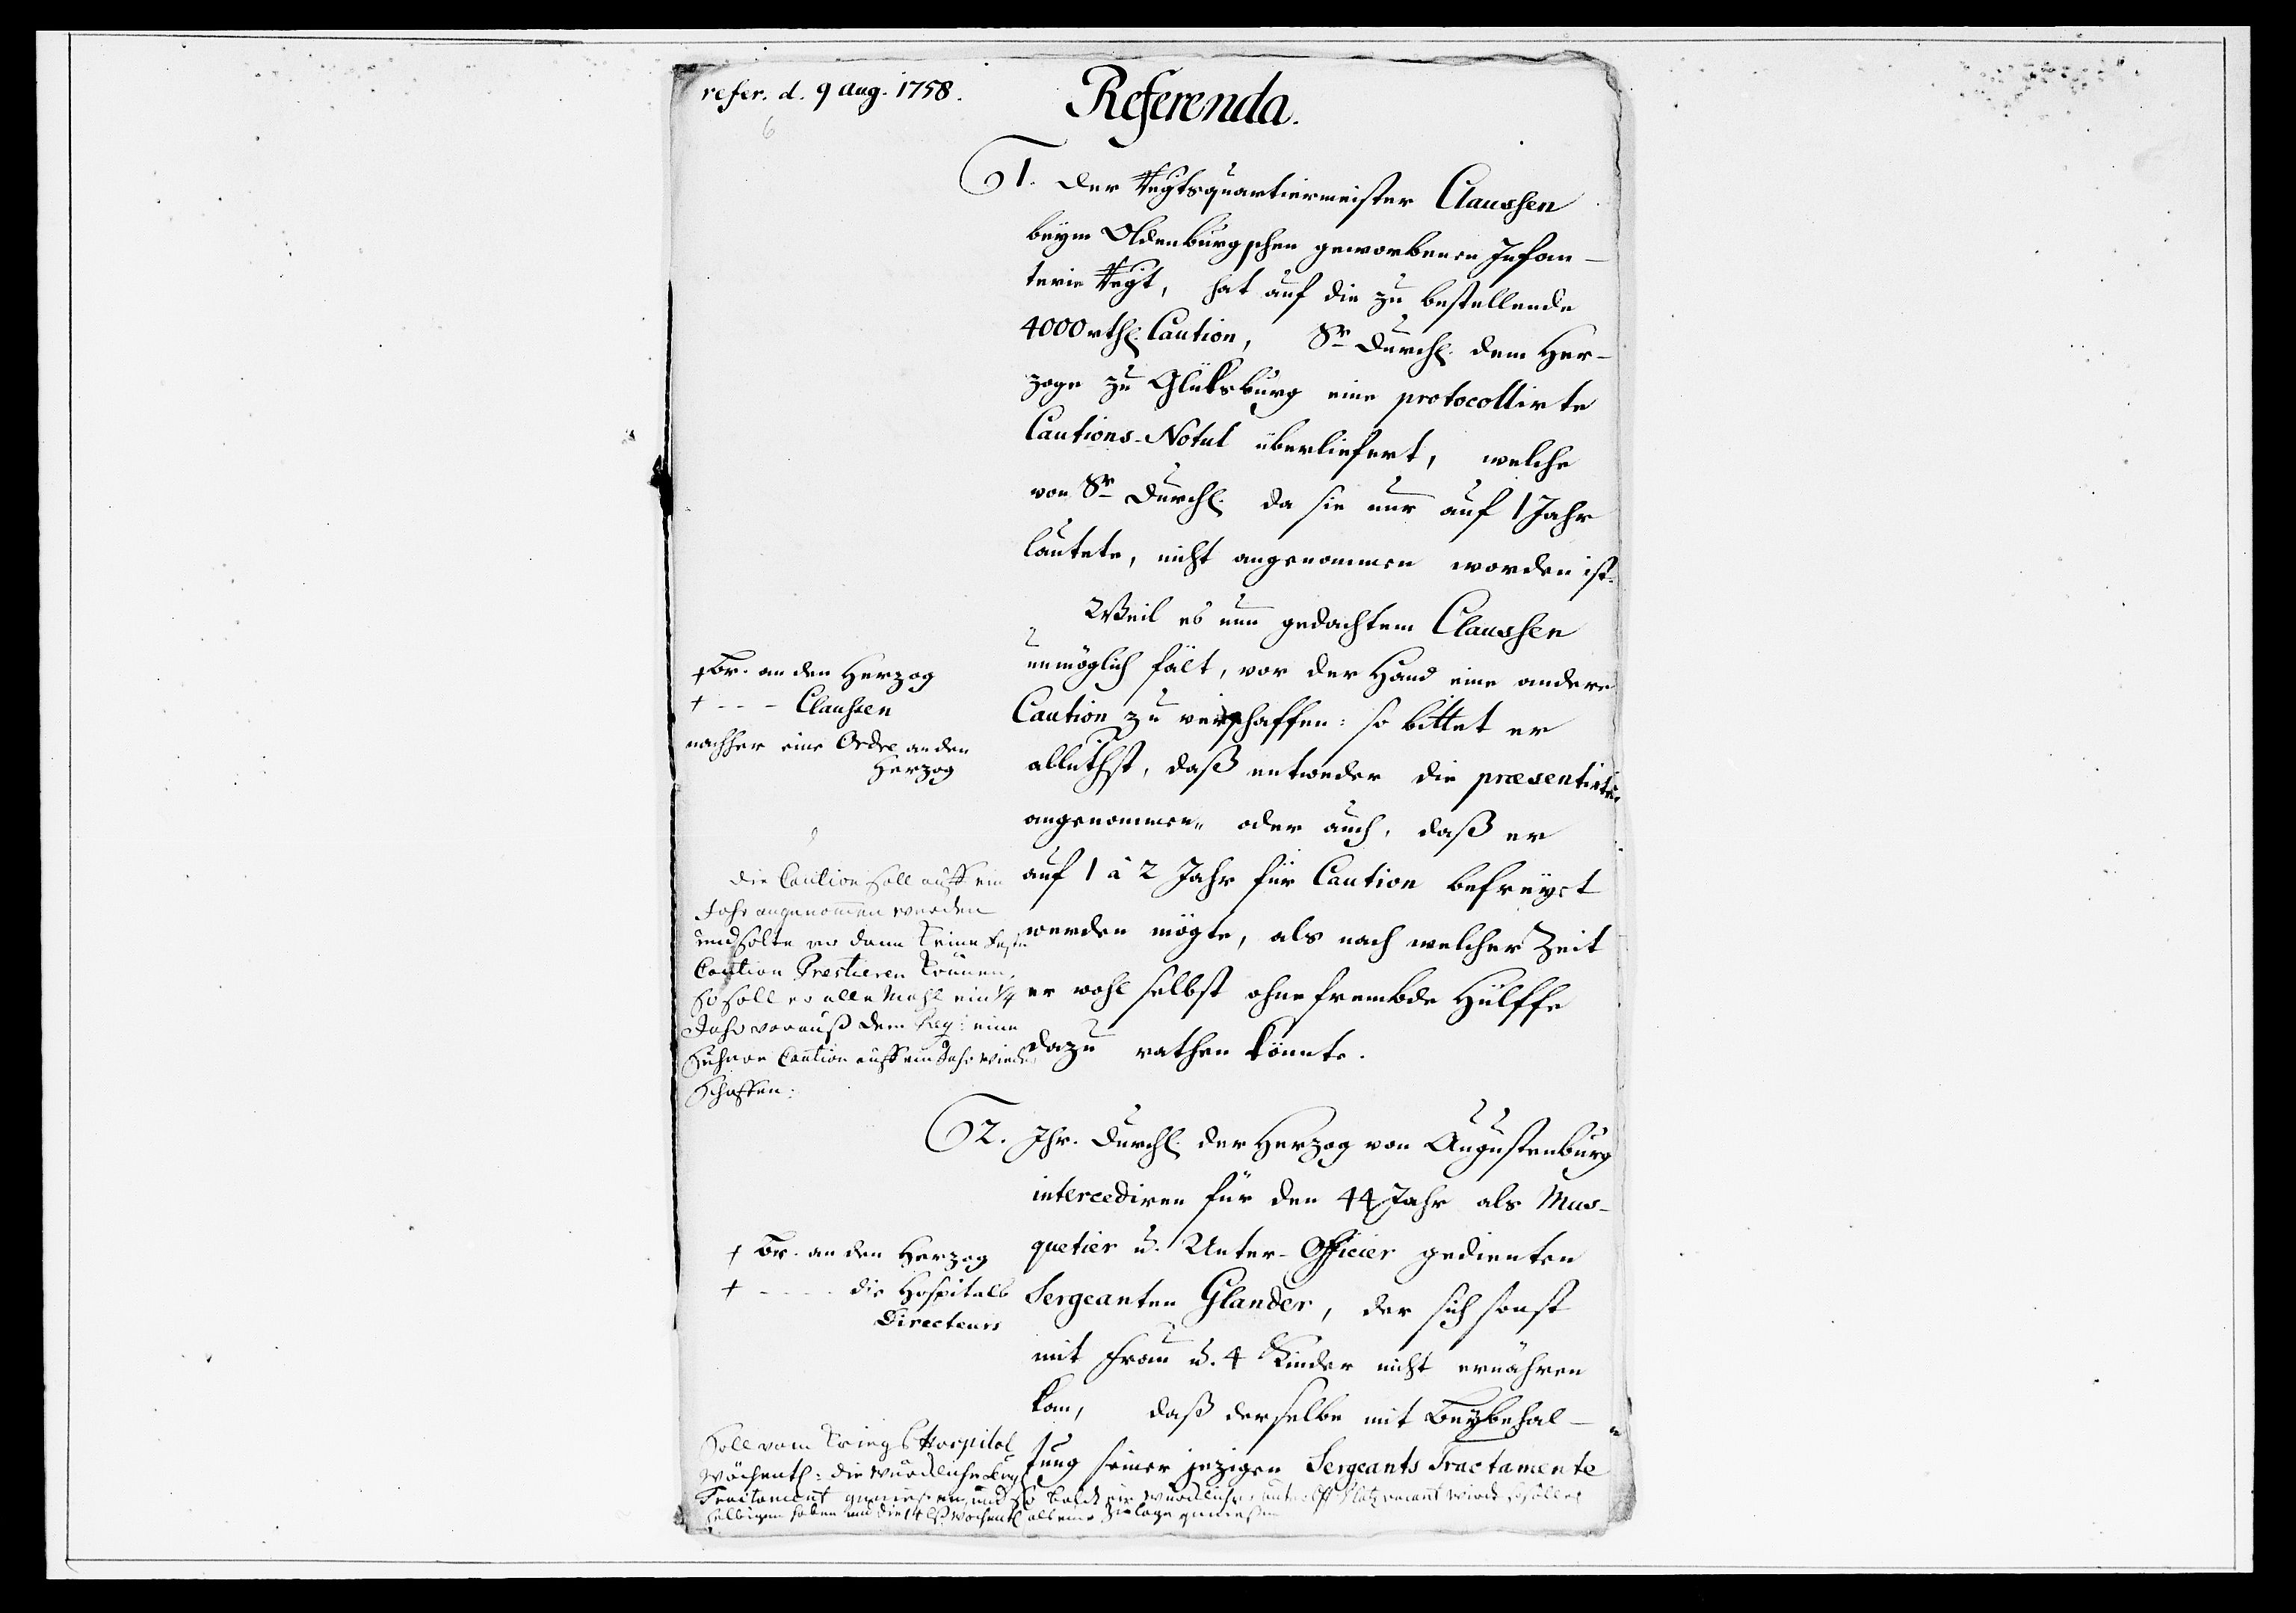 refer. d. 9 aug. 1758.
Referenda.
1. Der Regtsquartiermeister Claussen
beym Oldenburgschen geworbenen Infan-
terie Regt, hat auf die zu bestellende
4000 rthl. Caution, Sr Durchl. dem Her-
zoge zu Glüksburg eine protocollirte
Cautions-Notul überliefert, welche
von Sr Durchl. da sie nur auf 1 Jahr
lautete, nicht angenommen worden ist.
Weil es nun gedachtem Claussen
unmöglich fält, vor der Hand eine andere
Caution zu verschaffen: so bittet er
alluthst, daß entweder die præsentirte
angenommen, oder auch, daß er
auf 1 à 2 Jahr für Caution befreyet
werden mögte, als nach welcher Zeit
er wohl selbst ohne frembde Hülffe
dazu rathen könnte.
+ Br. an den Herzog
+ - - - Claussen
nachher eine Ordre an den
Herzog
die Caution soll auff ein
Jahr angenommen werden
und solte er dann keine feste
Caution Prestieren können,
so soll er alle Mahl ein 1/4
Jahr vorauß dem Reg: eine
sichere Caution auff ein Jahr wieder
schaffen:
2. Ihr. Durchl. der Herzog von Augustenburg
intercediren für den 44 Jahr als Mus-
quetier u. Unter-Officier gedienten
Sergeanten Glander, der sich sonst
mit Frau u. 4 Kinder nicht ernähren
kan, daß derselbe mit Beybehal-
tung seiner jezigen Sergeants Tractamente
+ Br. an den Herzog
+ - - - - die Hospitals
Directeurs
Soll vom Kriegs Hospital
wöchentl: die würckliche
Tractament geniessen, und so baldt ein würcklicher Platz vacant wird so soll er
selbigen haben und die 14 lß wochentl als eine Zulage geniessen